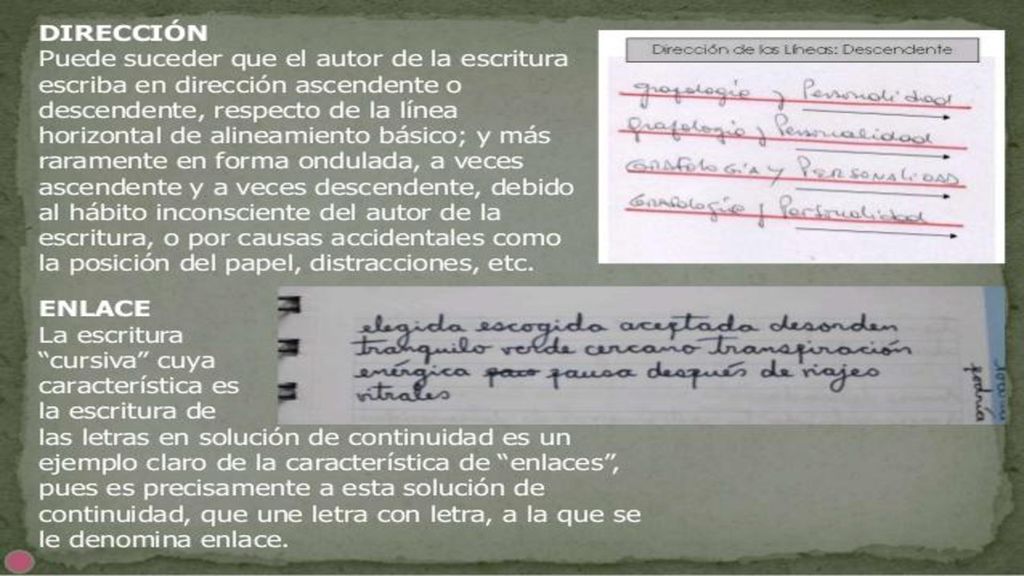 DIRECCIÓN
Puede suceder que el autor de la escritura
escriba en dirección ascendente o
descendente, respecto de la línea
horizontal de alineamiento básico; y más
raramente en forma ondulada, a veces
ascendente y a veces descendente, debido
al hábito inconsciente del autor de la
escritura, o por causas accidentales como
la posición del papel, distracciones, etc.
Dirección de las Líneas: Descendente
grafología y Personalidad
grafología y Personalidad
GRAFOLOGIA y PERSONALIDAD
Grafología y Personalidad
ENLACE
La escritura
“cursiva” cuya
característica es
la escritura de
las letras en solución de continuidad es un
ejemplo claro de la característica de “enlaces”,
pues es precisamente a esta solución de
continuidad, que une letra con letra, a la que se
le denomina enlace.
elegida escogida aceptada desorden
tranquilo verde cercano transpiración
enérgica paro pausa después de viajes
vitrales